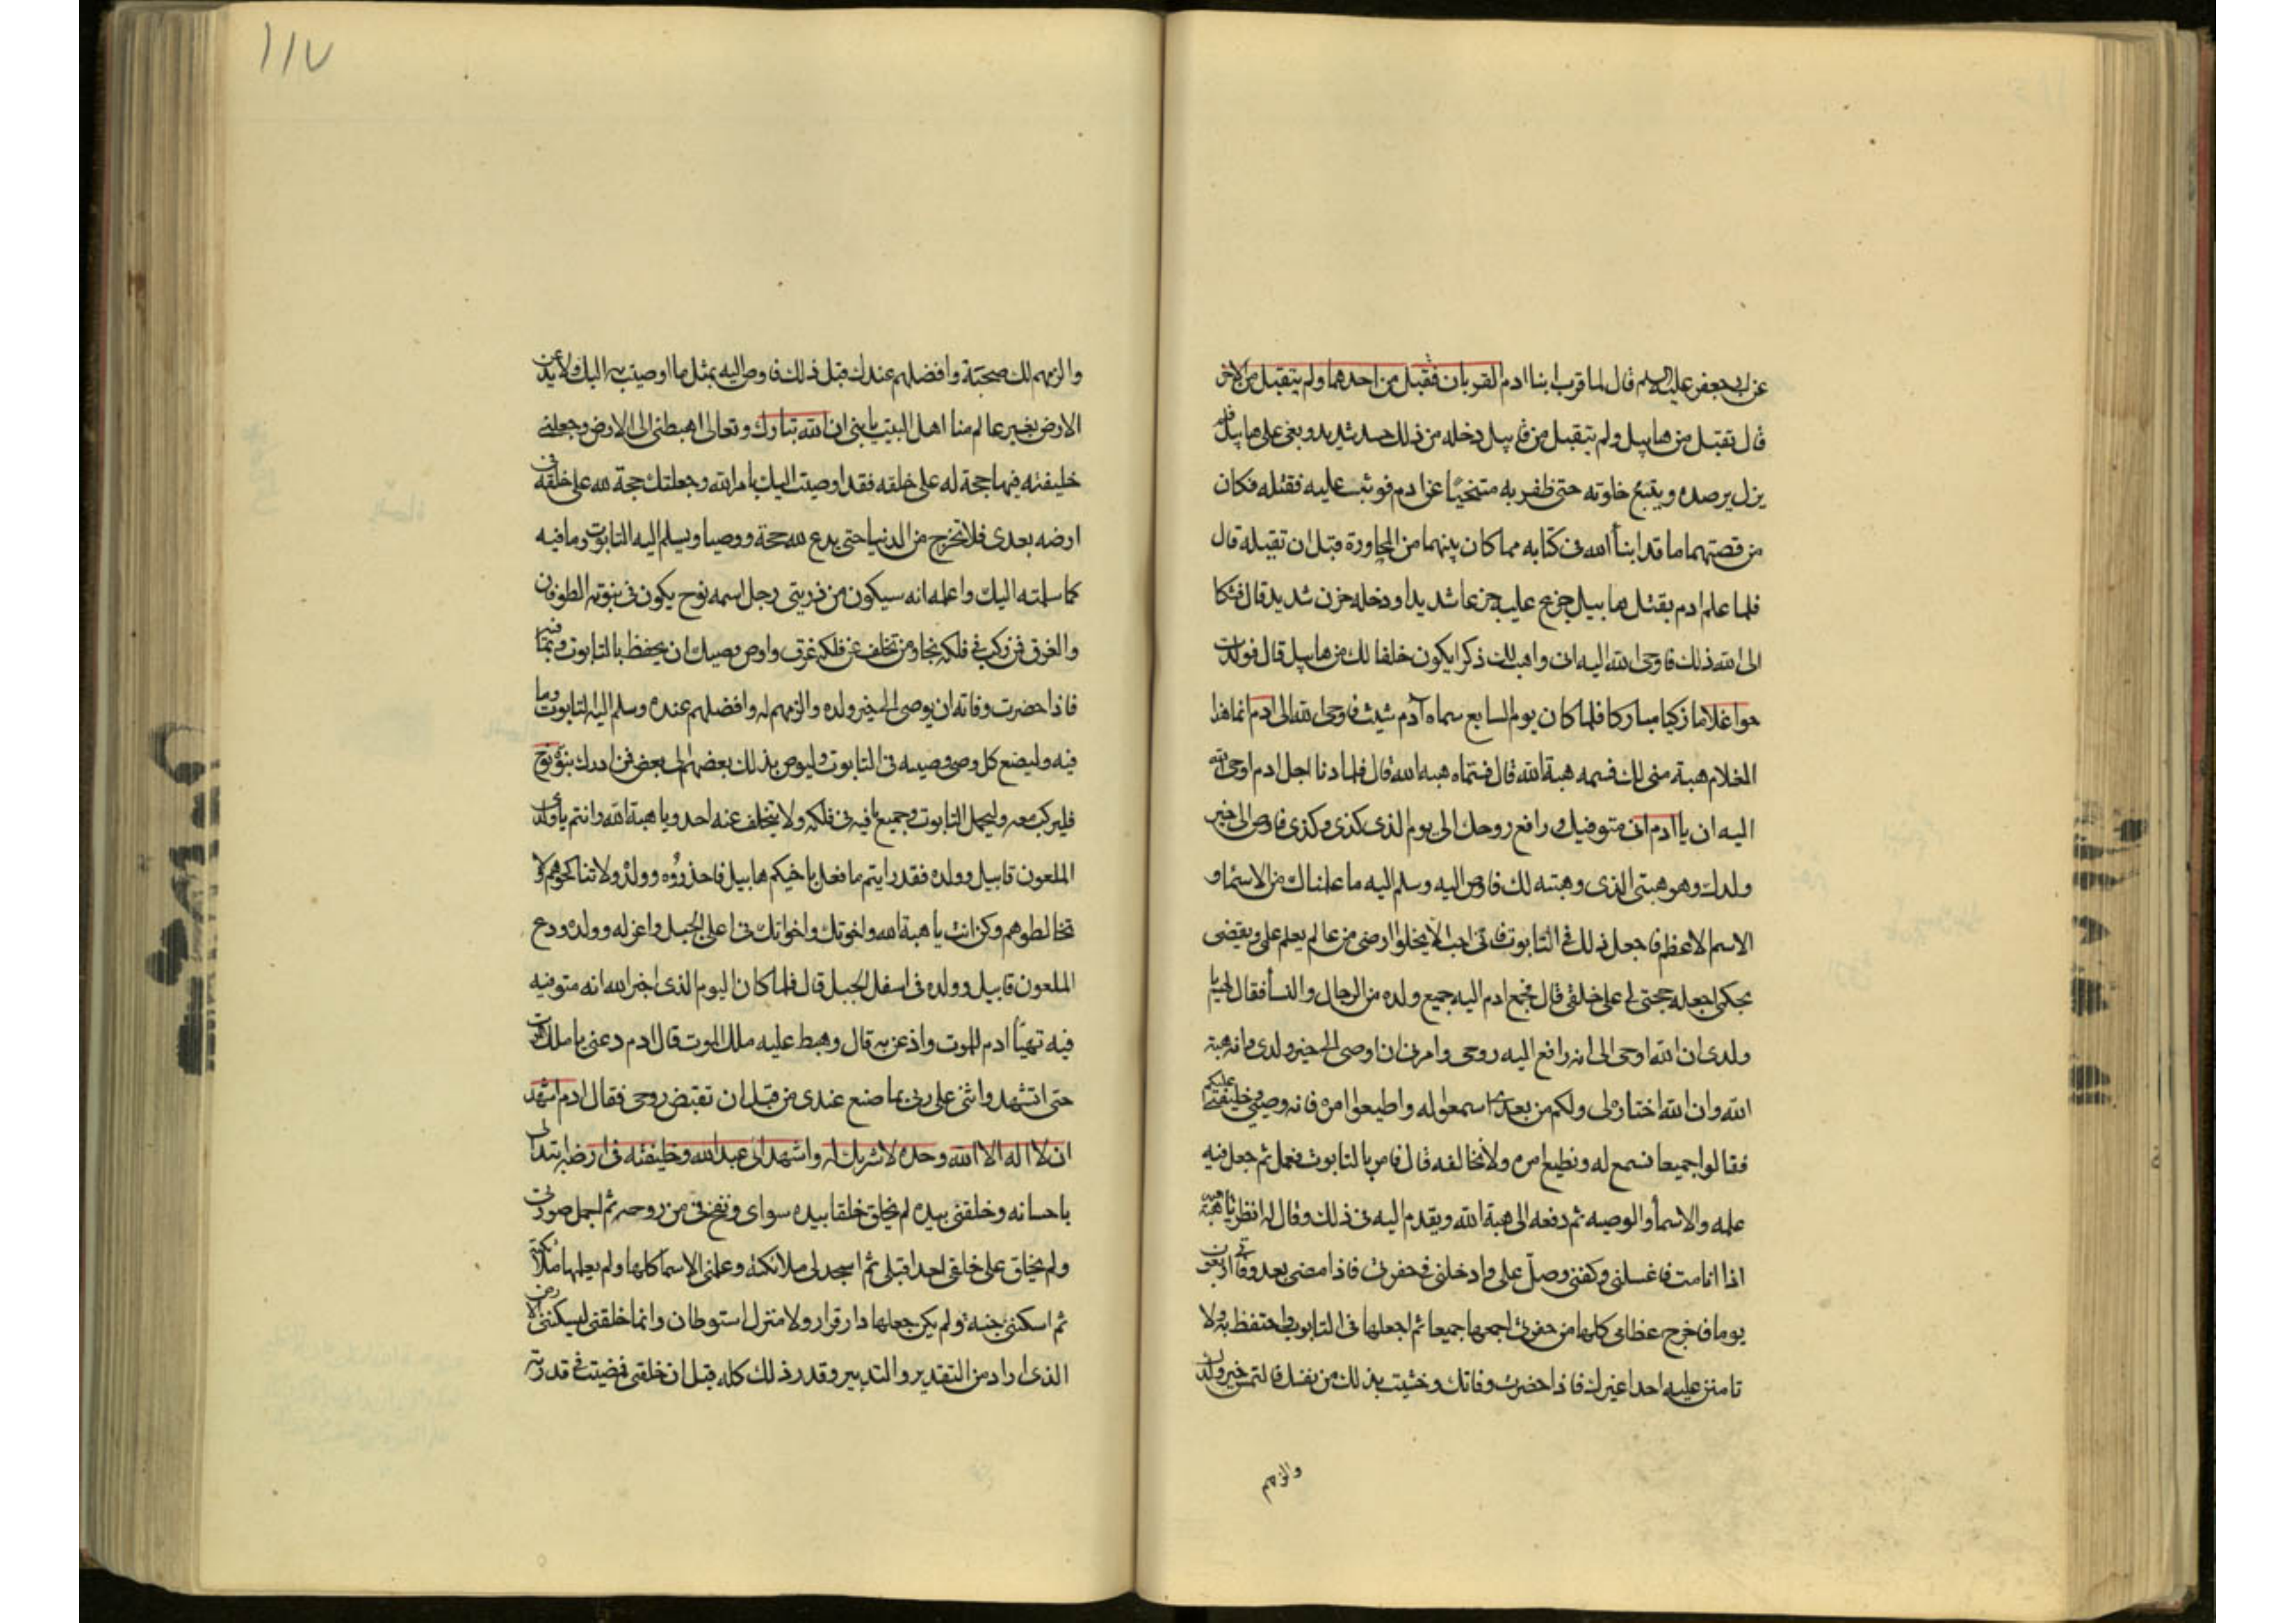 عن ابي جعفر عليه السلم قال لما قرب ابنا ادم القربان فتقبل من احدهما ولم يتقبل من الاخر
قال تقبل من هابيل ولم يتقبل من قابيل دخله من ذلك حسد شديد وبغى على هابيل فلم
يزل يرصده ويتبع خلوته حتى ظفر به متنحيا عن ادم فوثب عليه فقتله فكان
من قصتهما ما قد انبأ الله في كتابه مما كان بينهما من المحاورة قبل ان تقيله قال
فلما علم ادم بقتل هابيل جزع عليه جزعا شديدا ودخله حزن شديد قال فشكا
الى الله ذلك فاوحى الله اليه اني واهب لك ذكرا يكون خلفا لك من هابيل قال فولدت
حوا غلاما زكيا مباركا فلما كان يوم السابع سماه آدم شيث فاوحى الله الى ادم انما هذا
الغلام هبة مني لك فسمه هبة الله قال فسماه هبه الله قال فلما دنا اجل ادم اوحى الله
اليه ان يا ادم اني متوفيك ورافع روحك الي يوم الذى كذى وكذى فاوص الى خير
ولدك وهو هبتى الذى وهبته لك فاوص اليه وسلم اليه ما علمناك من الاسماء و
الاسم الاعظم فاجعل ذلك في التابوت فاني احب الا يخلوا ارضى من عالم يعلم علمي ويقضى
بحكمي اجعله حجتى لي على خلقى قال فجمع ادم اليه جميع ولده من الرجال والنسأ فقال لهم يا
ولدى ان الله اوحى الى انه رافع اليه روحى وامرنى ان اوصى الى خير ولدى وانه هبة
الله وان الله اختاره لي ولكم من بعدى اسمعوا له واطيعوا امره فانه وصيى وخليفتى عليكم
فقالوا جميعا نسمع له ونطيع امره ولا نخالفه قال فامر بالتابوت فعمل ثم جعل فيه
علمه والاسمأ والوصيه ثم دفعه الى هبة الله ويقدم اليه في ذلك وقال له انظر يا هبة الله
اذا انا مت فاغسلني وكفنى وصل على وادخلنى في حفرتى فاذا مضى بعد وفاتى اربعون
يوما فاخرج عظامى كلها من حفرتى اجمعها جميعا ثم اجعلها في التابوت واحتفظ به ولا
تامنن عليه احدا غيرك فاذا حضرت وفاتك وخشيت بذلك من نفسك فالتمس خير ولدك
والزمهم
١١٧
والزمهم لك صحبة وافضلهم عندك قبل ذلك فاوص اليه بمثل ما اوصيت به اليك ولا تدعن
الارض بغير عالم منا اهل البيت يا بنى ان الله تبارك وتعالى اهبطنى الى الارض وجعلنى
خليفته فيها حجة له على خلقه فقد اوصيت اليك بامر الله وجعلتك حجة لله على خلقه في
ارضه بعدى فلا تخرج من الدنيا حتى يدع لله حجة ووصيا ويسلم اليه التابوت وما فيه
كما سلمته اليك واعلمه انه سيكون من ذريتى رجل اسمه نوح يكون في نبوته الطوفان
والغرق فمن ركب في فلكه نجا ومن تخلف عن فلكه غرق واوص وصيك ان يحفظ بالتابوت وبما فيه
فاذا حضرت وفاته ان يوصى الى خير ولده والزمهم له وافضلهم عنده وسلم اليه التابوت وما
فيه وليضع كل وصى وصيته في التابوت وليوص بذلك بعضهم الى بعض فمن ادرك نبوة نوح
فليركب معه وليحمل التابوت وجميع ما فيه في فلكه ولا يتخلف عنه احد ويا هبة الله وانتم يا ولدى
الملعون قابيل وولده فقد رايتم ما فعل باخيكم هابيل فاحذروه وولده ولا تناكحوهم ولا
تخالطوهم وكن انت يا هبة الله واخوتك واخواتك في اعلى الجبل واعزله وولده ودع
الملعون قابيل وولده في اسفل الجبل قال فلما كان اليوم الذى اخبر الله انه متوفيه
فيه تهيأ ادم للموت واذعن به قال وهبط عليه ملك الموت قال ادم دعنى يا ملك الموت
حتى اتشهد واثنى على ربى بما صنع عندى من قبل ان تقبض روحى فقال ادم اشهد
ان لا اله الا الله وحده لا شريك له واشهد انى عبد الله وخليفته في ارضه ابتدانى
باحسانه وخلقنى بيده لم يخلق خلقا بيده سواى ونفخ في من روحه ثم اجمل صورتى
ولم يخلق على خلقى احدا قبلى ثم اسجد لى ملائكته وعلمنى الاسما كلها ولم يعلمها ملائكته
ثم اسكنى جنته ولم يكن جعلها دار قرار ولا منزل استوطان وانما خلقنى ليسكننى الارض
الذى اراد من التقدير والتدبير وقدر ذلك كله قبل ان خلقنى فمضيت في قدرته